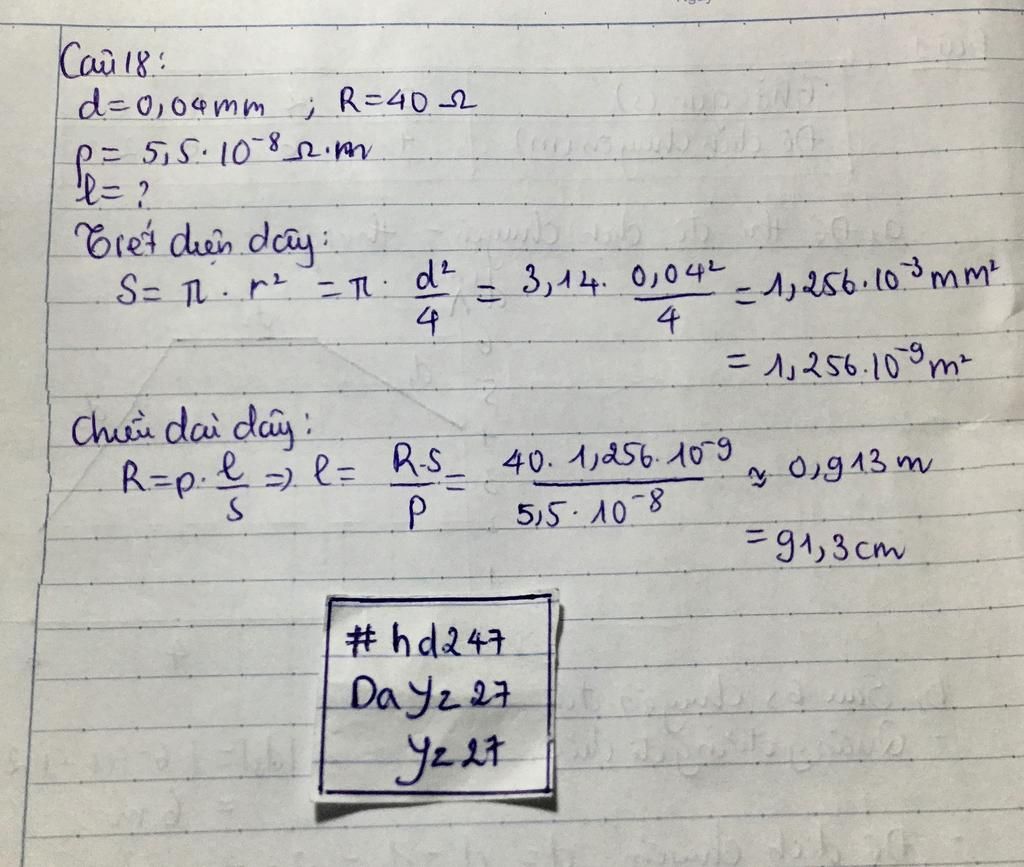 Câu 18:
d = 0,04 mm ; R = 40 Ω
ρ = 5,5 · 10⁻⁸ Ω·m
ℓ = ?
Tiết diện dây:
S = π · r² = π · d²/4 = 3,14 · 0,04²/4 = 1,256 · 10⁻³ mm²
= 1,256 · 10⁻⁹ m²
Chiều dài dây:
R = ρ · ℓ/S => ℓ = R·S/ρ = 40 · 1,256 · 10⁻⁹/5,5 · 10⁻⁸ ≈ 0,913 m
= 91,3 cm
# hd247
Da yz 27
yz 27